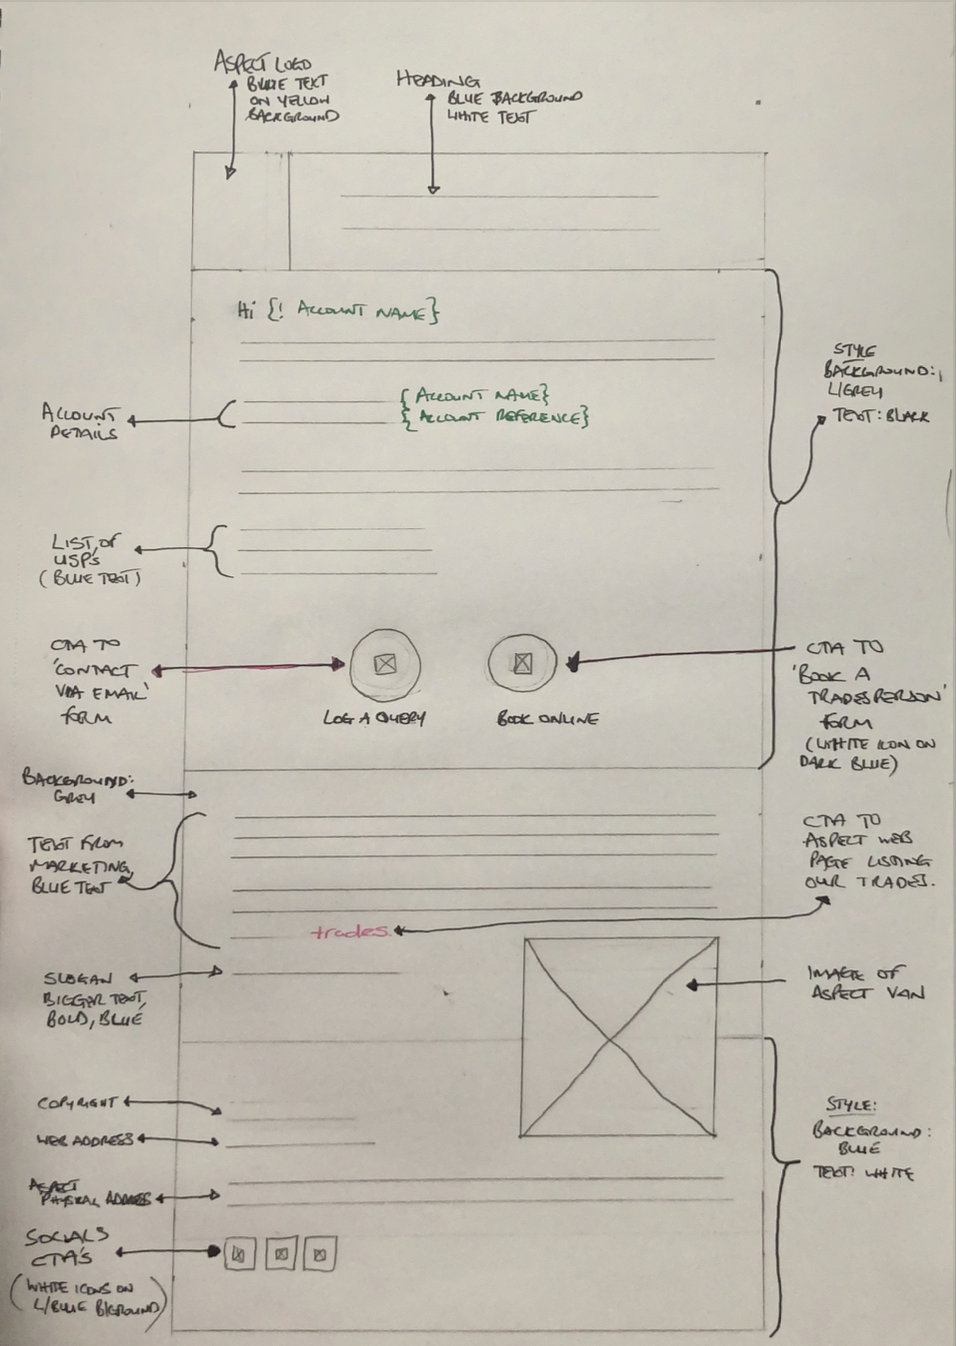 ASPECT LOGO
BLUE TEXT
ON YELLOW
BACKGROUND
HEADING
BLUE BACKGROUND
WHITE TEXT
Hi {! ACCOUNT NAME}
{ACCOUNT NAME}
{ACCOUNT REFERENCE}
ACCOUNT
DETAILS
STYLE
BACKGROUND:
L/GREY
TEXT: BLACK
LIST OF
USP'S
(BLUE TEXT)
CTA TO
'CONTACT
VIA EMAIL'
FORM
LOG A QUERY
BOOK ONLINE
CTA TO
'BOOK A
TRADESPERSON'
FORM
(WHITE ICON ON
DARK BLUE)
BACKGROUND:
GREY
TEXT FROM
MARKETING,
BLUE TEXT
CTA TO
ASPECT WEB
PAGE LISTING
OUR TRADES.
trades.
SLOGAN
BIGGER TEXT,
BOLD, BLUE
IMAGE OF
ASPECT VAN
COPYRIGHT
WEB ADDRESS
ASPECT
PHYSICAL ADDRESS
STYLE:
BACKGROUND:
BLUE
TEXT: WHITE
SOCIALS
CTA'S
(WHITE ICONS ON
L/BLUE B/GROUND)